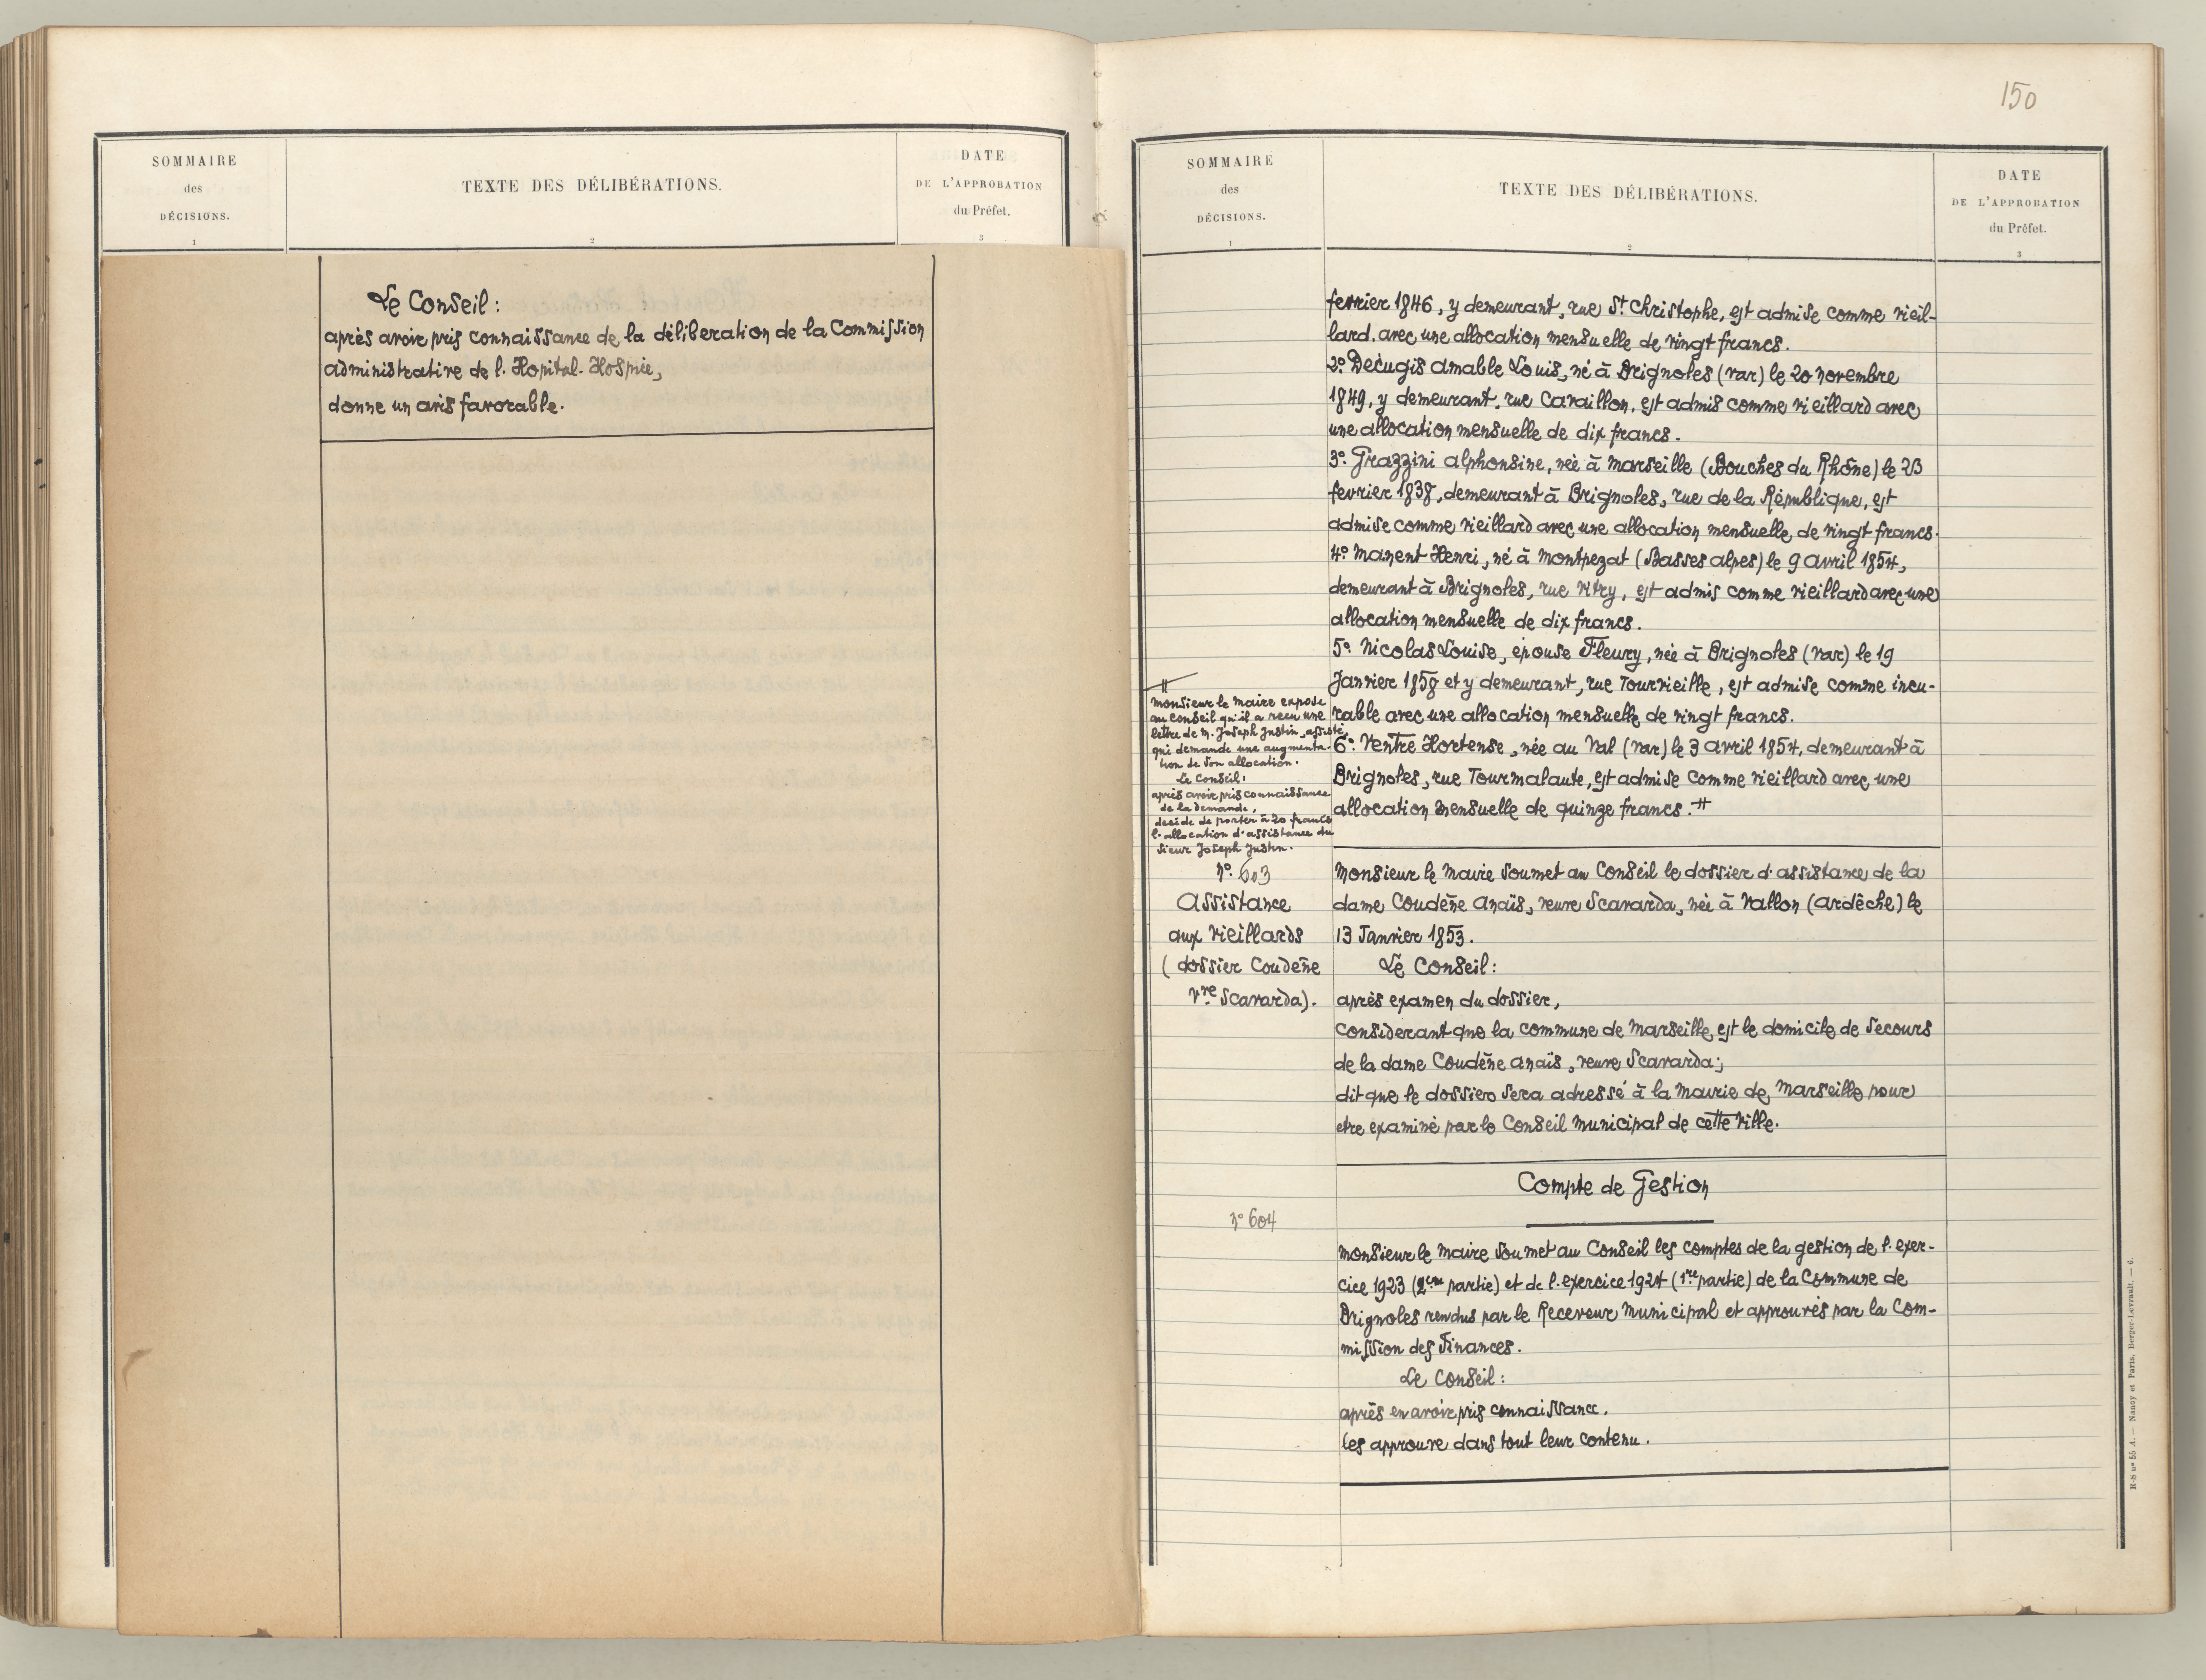 SOMMAIRE
des
DÉCISIONS.
1
TEXTE DES DÉLIBÉRATIONS.
2
DATE
DE L'APPROBATION
du Préfet.
3
Le Conseil :
après avoir pris connaissance de la déliberation de la Commission
administrative de l'Hopital-Hospice,
donne un avis favorable.
150
SOMMAIRE
des
DÉCISIONS.
1
TEXTE DES DÉLIBÉRATIONS.
2
DATE
DE L'APPROBATION
du Préfet.
3
fevrier 1846, y demeurant, rue St Christophe, est admise comme vieil-
lard, avec une allocation mensuelle de vingt francs.
2º. Decugis amable Louis, né à Brignoles (var) le 20 novembre
1849, y demeurant, rue Cavaillon, est admis comme vieillard avec
une allocation mensuelle de dix francs.
3º. Grazzini alphonsine, née à marseille (Bouches du Rhône) le 23
fevrier 1838, demeurant à Brignoles, rue de la République, est
admise comme vieillard avec une allocation mensuelle, de vingt francs.
4º. Manent Henri, né à Montpezat (Basses alpes) le 9 avril 1854,
demeurant à Brignoles, rue vitry, est admis comme vieillard avec une
allocation mensuelle de dix francs.
5º. Nicolas Louise, épouse Fleury, née à Brignoles (var) le 19
Janvier 1858 et y demeurant, rue Tourvieille, est admise comme incu-
rable avec une allocation mensuelle de vingt francs.
6º. Ventre Hortense, née au Val (var) le 3 avril 1854, demeurant à
Brignoles, rue Tourmalaute, est admise comme vieillard avec une
allocation mensuelle de quinze francs. #
#
Monsieur le Maire expose
au conseil qu'il a reçu une
lettre de M. Joseph Justin, assisté,
qui demande une augmenta-
tion de son allocation.
Le Conseil :
après avoir pris connaissance
de la demande,
decide de porter à 20 francs
l'allocation d'assistance du
sieur Joseph Justin.
nº. 603
Assistance
aux Vieillards
( dossier Coudène
vve Scavarda).
Monsieur le Maire soumet au Conseil le dossier d'assistance de la
dame Coudène Anaïs, veuve Scavarda, née à Vallon (ardèche) le
13 Janvier 1853.
Le Conseil :
après examen du dossier,
considerant que la commune de Marseille, est le domicile de secours
de la dame Coudène Anaïs, veuve Scavarda ;
dit que le dossier sera adressé à la Mairie de Marseille pour
etre examiné par le Conseil Municipal de cette Ville.
Compte de Gestion
nº 604
Monsieur le Maire soumet au Conseil les comptes de la gestion de l'exer-
cice 1923 (2eme partie) et de l'exercice 1924 (1re partie) de la Commune de
Brignoles rendus par le Receveur Municipal et approuvés par la Com-
mission des Finances.
Le Conseil :
après en avoir pris connaissance.
les approuve dans tout leur contenu.
R-S nº 55 A. — Nancy et Paris, Berger-Levrault. — 6.